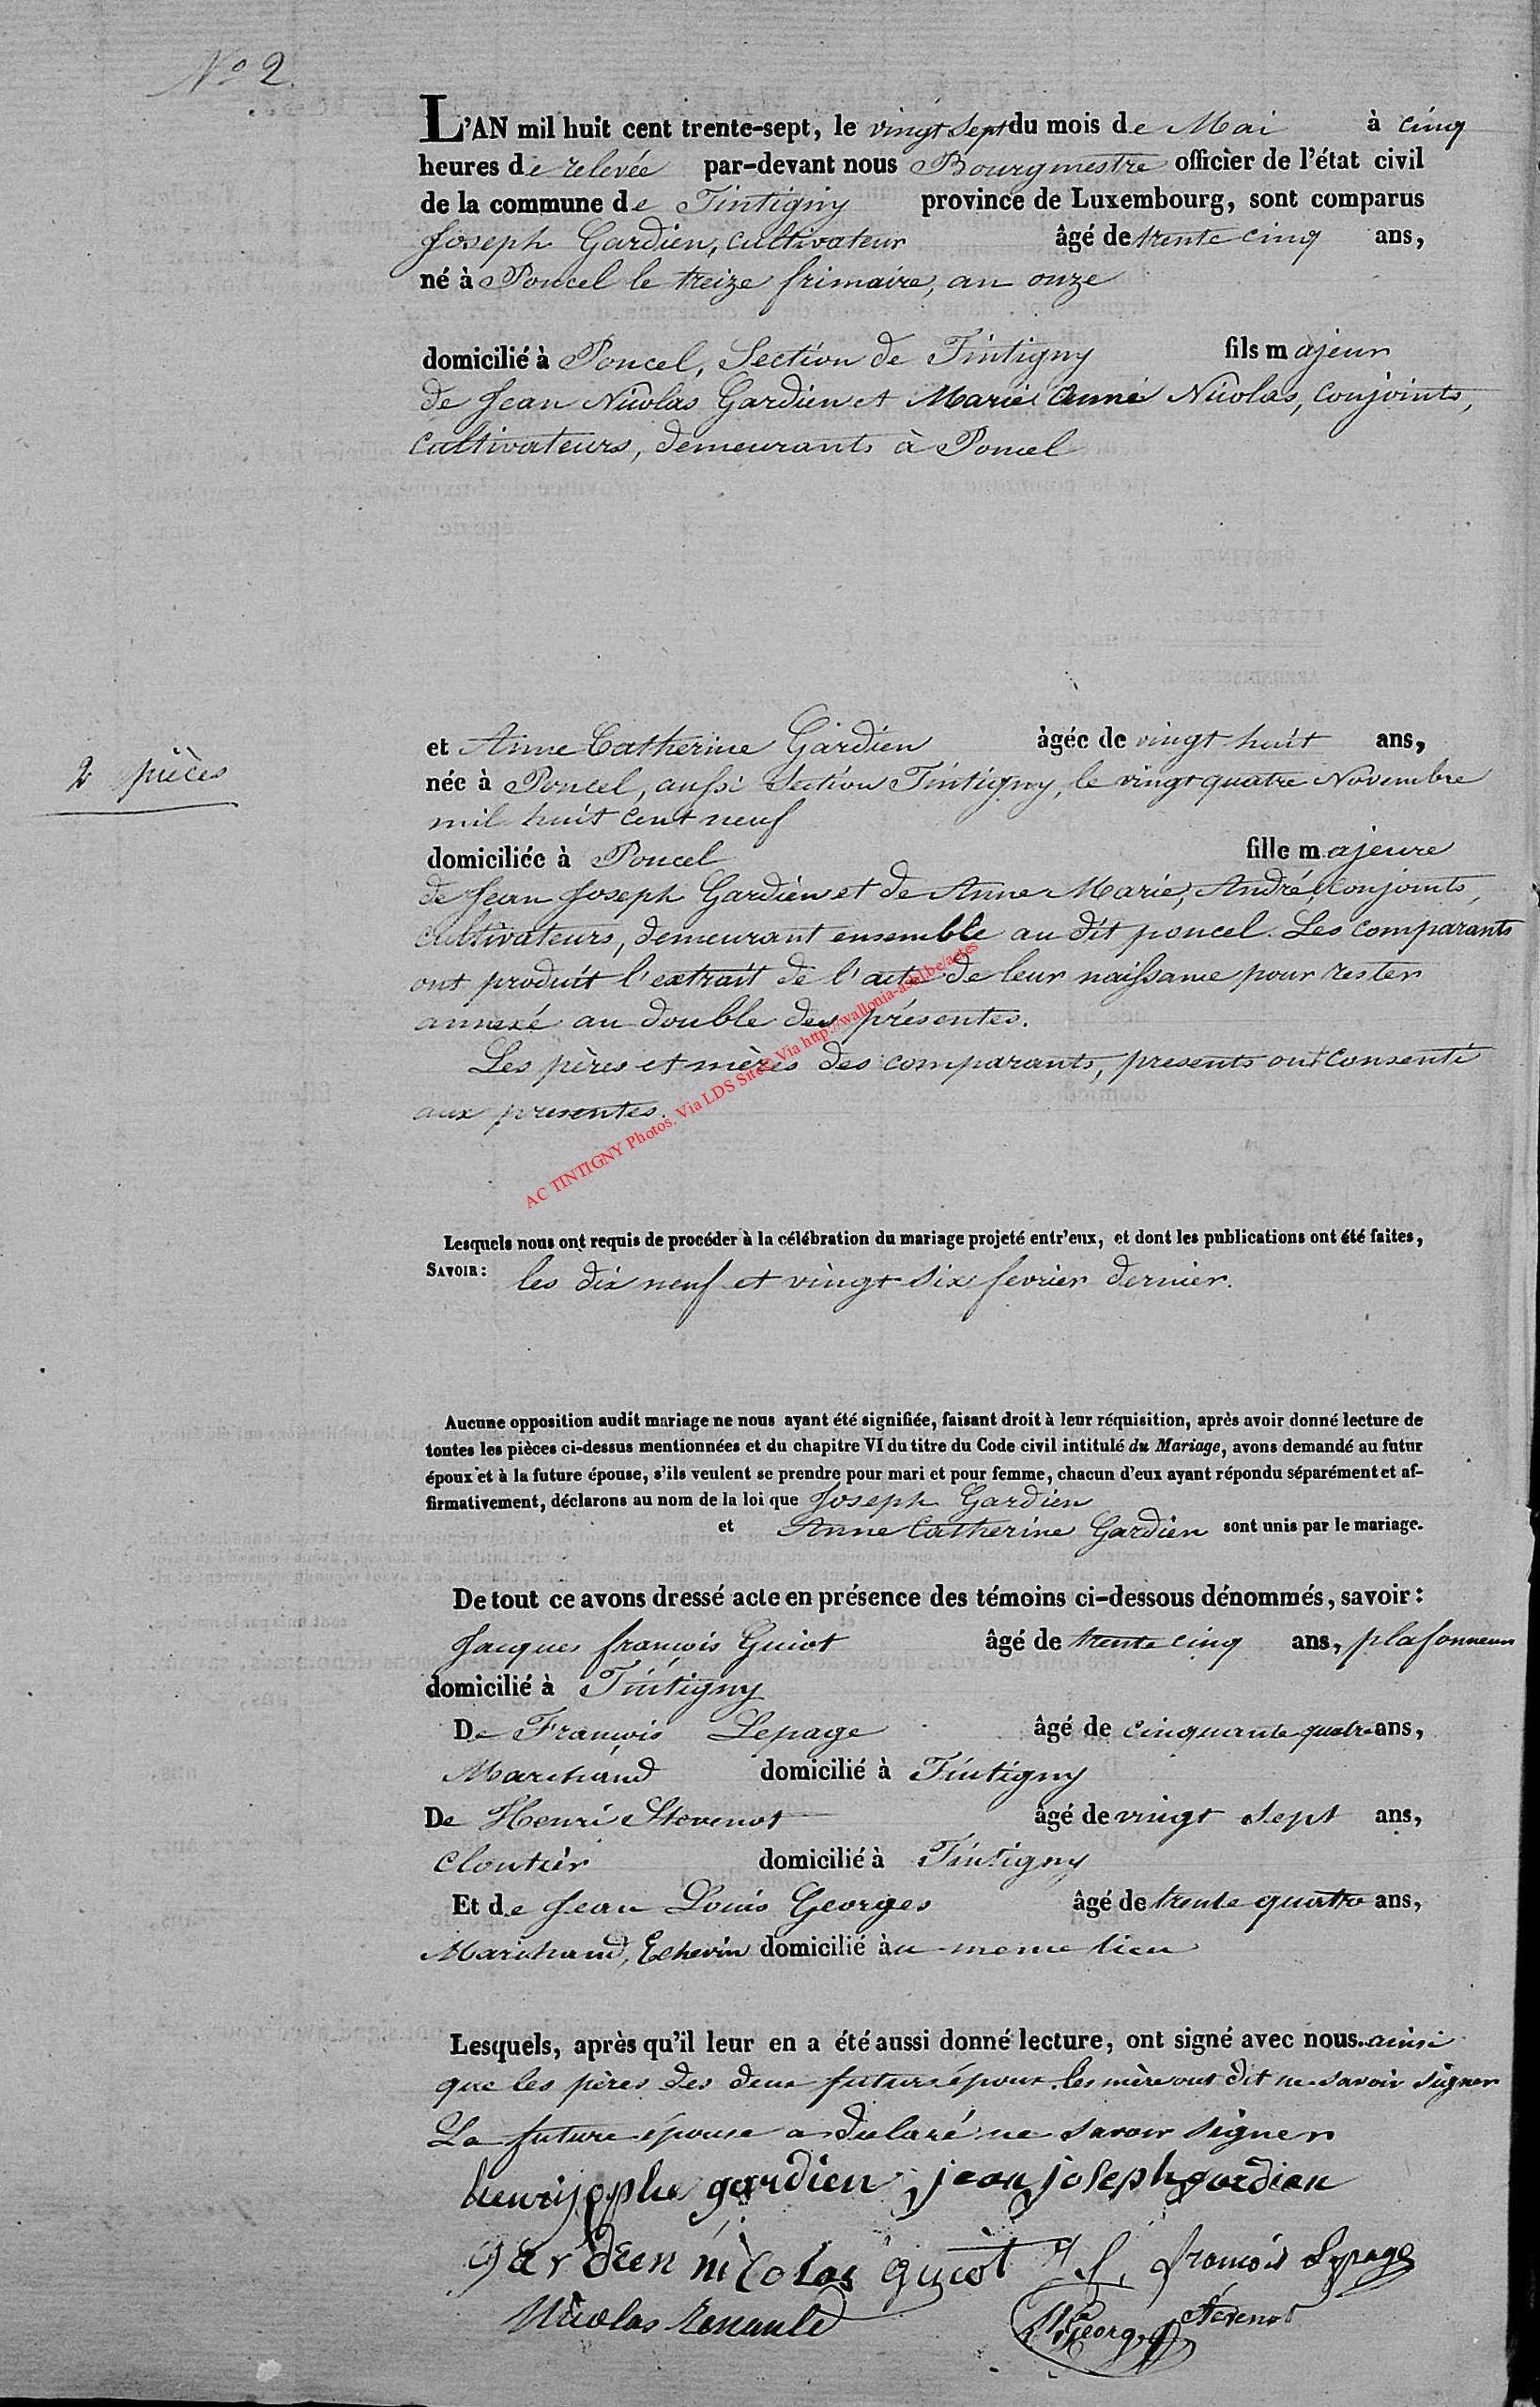 No 2.
L'AN mil huit cent trente-sept, le vingt sept du mois de Mai à cinq
heures de relevée par-devant nous Bourgmestre officier de l'état civil
de la commune de Tintigny province de Luxembourg, sont comparus
Joseph Gardien, cultivateur âgé de trente cinq ans,
né à Poncel le treize frimaire, an onze
domicilié à Poncel, Section de Tintigny fils majeur
de Jean Nicolas Gardien et Marie Anne Nicolas, conjoints,
cultivateurs, demeurants à Poncel
et Anne Catherine Gardien âgée de vingt huit ans,
2 pièces
née à Poncel, aussi Section Tintigny, le vingt quatre Novembre
mil huit cent neuf
domiciliée à Poncel fille majeure
de Jean Joseph Gardien et de Anne Marie, André, conjoints,
cultivateurs, demeurant ensemble au dit poncel. Les comparants
ont produit l'extrait de l'acte de leur naissance pour rester
annexé au double des présentes.
Les pères et mères des comparants, presents ont consenti
aux presentes.
AC TINTIGNY Photos. Via LDS Site© Via http://wallonia-asbl.be/actes
Lesquels nous ont requis de procéder à la célébration du mariage projeté entr'eux, et dont les publications ont été faites,
SAVOIR: les dix neuf et vingt six fevrier dernier.
Aucune opposition audit mariage ne nous ayant été signifiée, faisant droit à leur réquisition, après avoir donné lecture de
toutes les pièces ci-dessus mentionnées et du chapitre VI du titre du Code civil intitulé du Mariage, avons demandé au futur
époux et à la future épouse, s'ils veulent se prendre pour mari et pour femme, chacun d'eux ayant répondu séparément et af-
firmativement, déclarons au nom de la loi que Joseph Gardien
et Anne Catherine Gardien sont unis par le mariage.
De tout ce avons dressé acte en présence des témoins ci-dessous dénommés, savoir:
Jacques françois Guiot âgé de trente cinq ans, plafonneur
domicilié à Tintigny
De François Lepage âgé de cinquante quatre ans,
Marchand domicilié à Tintigny
De Henri Stevenot âgé de vingt sept ans,
cloutier domicilié à Tintigny
Et de Jean Louis Georges âgé de trente quatre ans,
Marchand, Echevin domicilié au meme lieu
Lesquels, après qu'il leur en a été aussi donné lecture, ont signé avec nous ainsi
que les pères des deux futurs époux. les mère ont dit ne savoir signer
La future épouse a declaré ne savoir signer
gardien jean joseph gardien
gardien nicolas guiot J f. françois Lepage
Nicolas Renauld Georges Stevenot